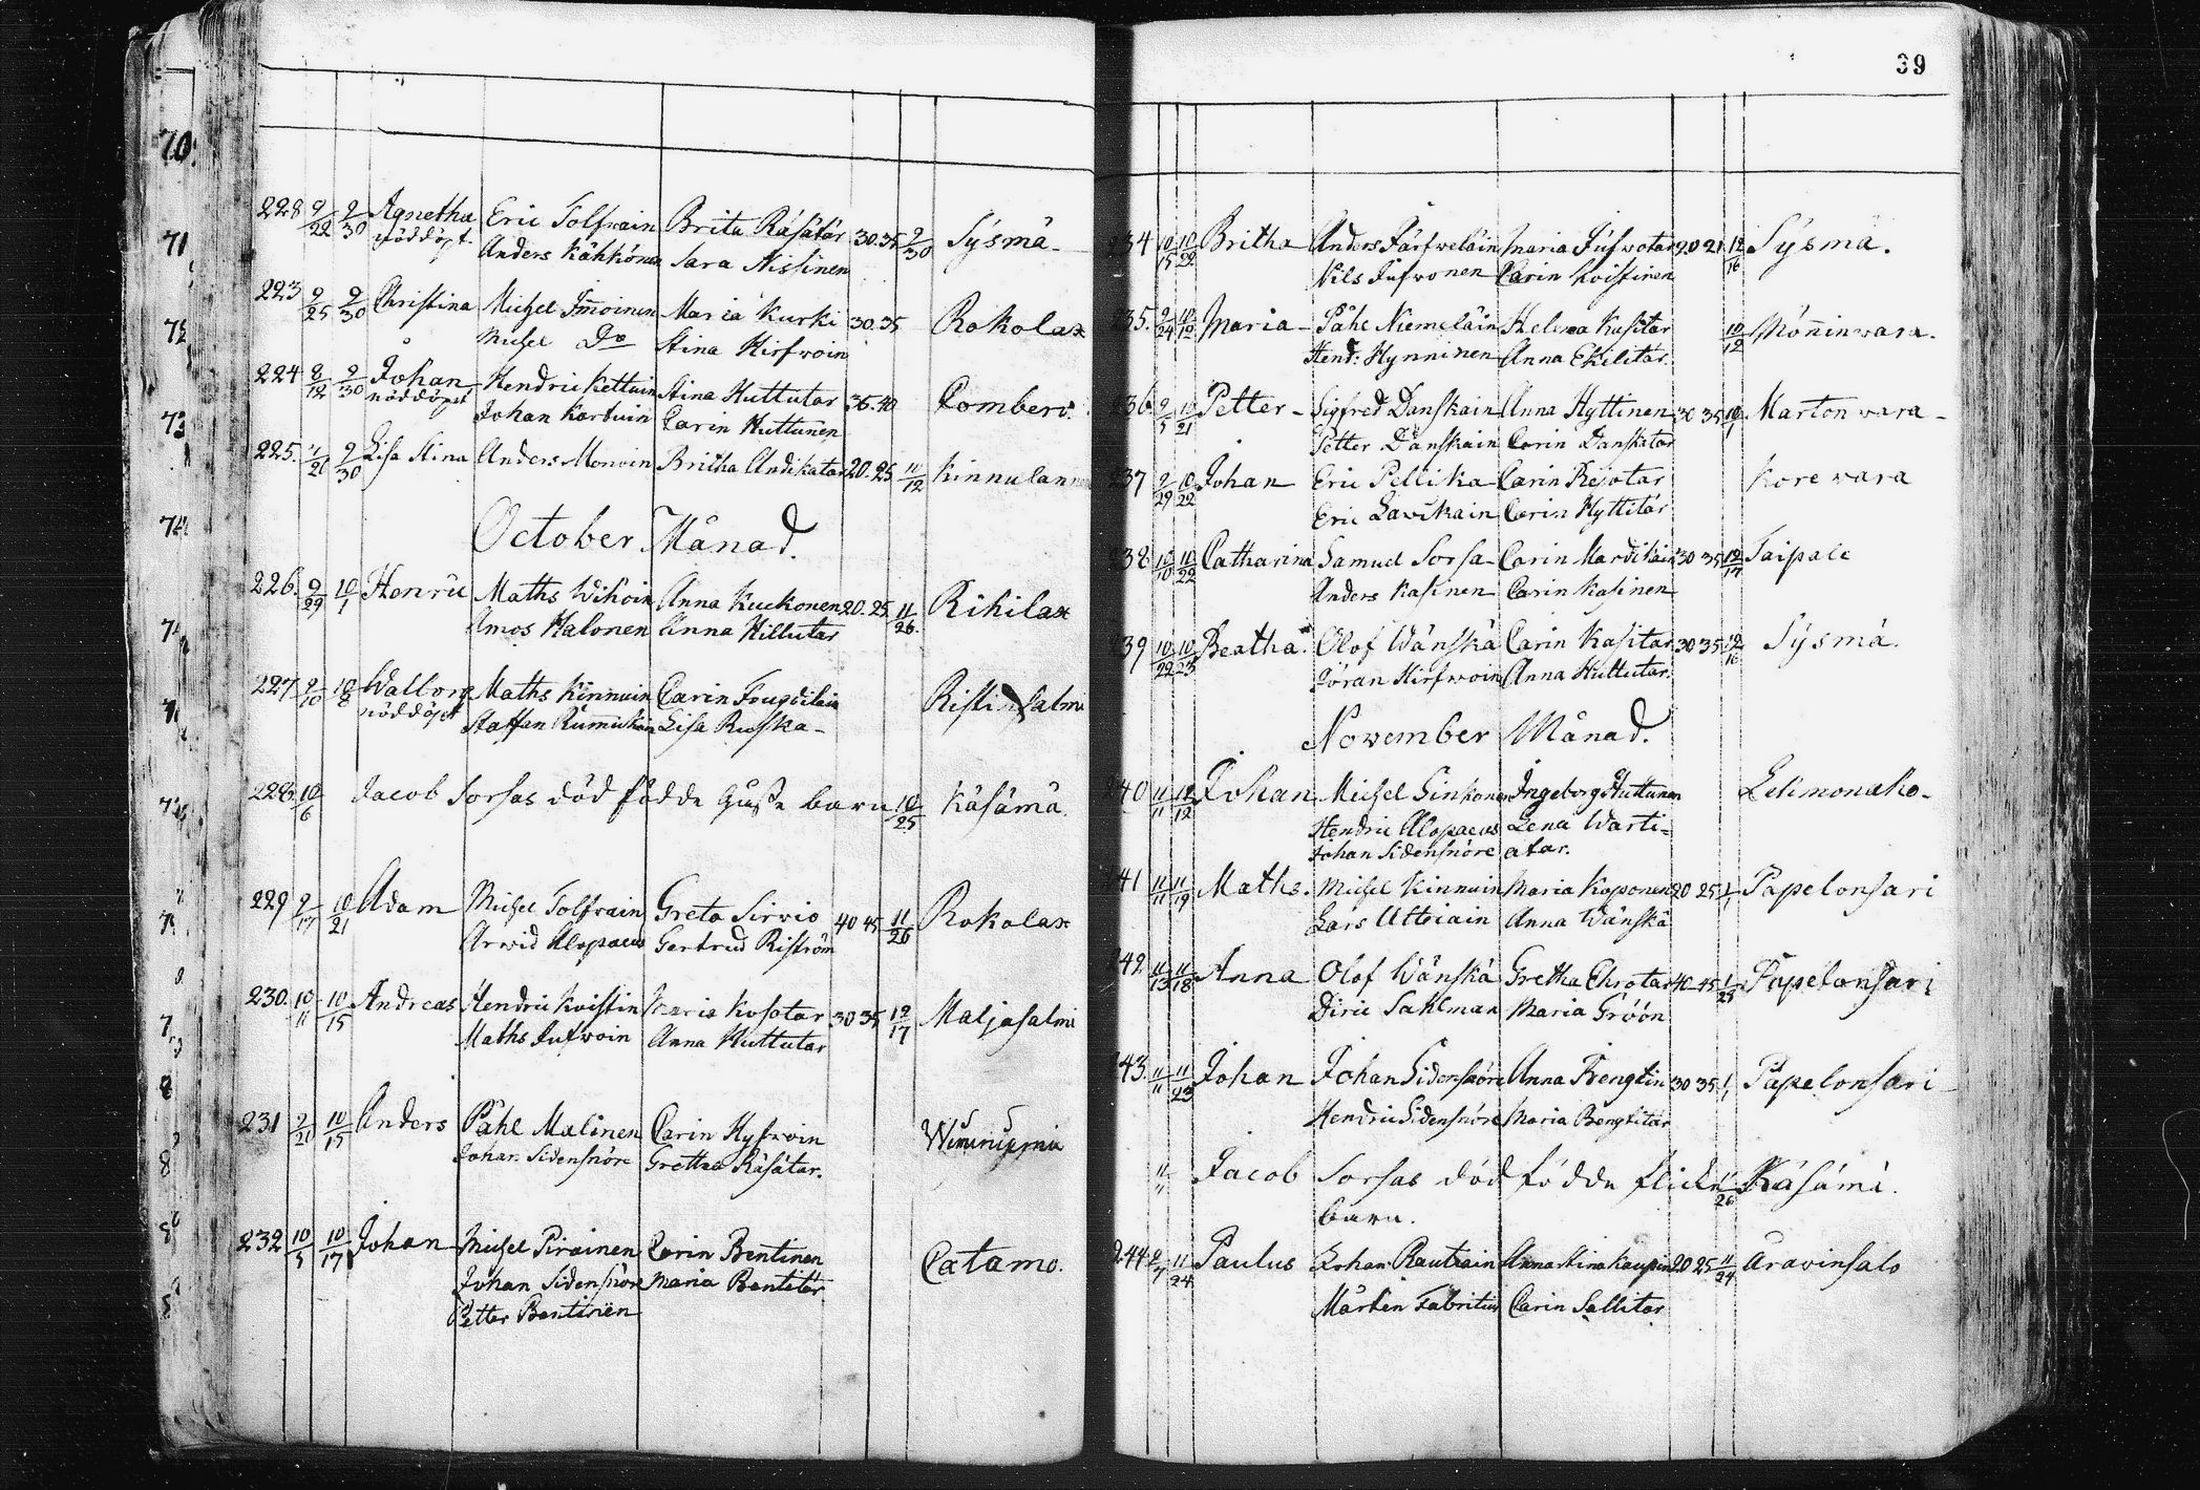 228 9/22 9/30 Agnetha Eric Tolfwain Brita Räsätär 30.35 9/30 Sysmä
nöddöpt. Anders Kähkönen Sara Nissinen
223 9/25 9/30 Christina Michel Immoinen Maria Kurki 30.35 Rokolax
Michel Do Stina Hirfwoin
224 8/12 9/30 Johan Hendric Kettuin Stina Huttutar 35.40 Comberi.
nöddöpt Johan Kortuin Carin Huttunen
225. 9/30 Lisa Stina Anders Monoin Britha Andikatar 20.25 11/12
October Månad.
226. 9/29 10/1 Henric Maths Wihoin Anna Kuckonen 20.25 11/26. Rihilax
Amos Halonen Anna Hillutar
227 9/10 10/8 Walborg Maths Kinnuin Carin Ristinsalmi
nöddöpt Staffan Lisa Ruska
228 10/6 Jacob Sorsas död födde barn 10/25 Käsämä.
229 9/17 10/21 Adam Michel Tolfwain Greta Sirvio 40 45 11/26 Rokolax
Arwid Alopaeus Gertrud Riström
230. 10/11 10/15 Andreas Hendric Koistin Maria Kosotar 30 35 12/17 Maljasalmi
Maths Jufwoin Anna Huttutar
231 9/21 10/15 Anders Påhl Malinen Carin Hyfwoin
Johan Sidensnöre Gretha Räsätar.
232 10/5 10/17 Johan Michel Pirainen Carin Bentinen Catamo.
Johan Sidensnöre Maria Bentitär
Petter Bentinen
39
234 10/15 10/22 Britha Anders Järfweläin Maria Jufwotar 20 21 12/16 Sysmä.
Nils Jufwonen Carin Koistinen
235. 9/24 10/12 Maria Påhl Niemeläin Helena Kasitar 10/12 Mönninwara.
Hend: Hynninen Anna Ekilitär.
236 9/5 10/21 Petter Sigfred Danskain Anna Hyttinen 30 35 10/1 Martonwara
Petter Danskain Carin Danskatar
237 9/29 10/22 Johan Eric Pellika Carin Rejotar Korewara
Eric Lavikain Carin Hyttitär
238 10/10 10/22 Catharina Samuel Sorsa Carin Mardikain 30 35 12/17 Taipale
Anders Kasinen Carin Kasinen
239 10/22 10/23 Beatha. Olof Wänskä Carin Kasitar 30 35 12/16 Sysmä.
Jöran Hirfwoin Anna Huttutar.
November Månad.
240 11/11 Johan Michel Sinkonen Ingeborg Huttunen
Hendric Alopaeus Lena Warti=
Johan Sidensnöre atar.
241 11/11 11/19 Maths. Michel Kinnuin Maria Koponen 20 25 1/1 Papelonsari
Lars Uttriain Anna Wänskä
242 11/13 11/18 Anna Olof Wänskä Gretha Ehrotar 40 45 Papelonsari
Diric Sahlman Maria Gröön
243. 11/11 11/23 Johan Johan Sidensnöre Anna Bengtin 30 35 1/1 Papelonsari
Hendric Sidensnöre Maria Bengtitär
11/11 Jacob Sorsas död födde flicke Käsämä.
barn.
244 9/7 11/24 Paulus Johan Rautiain Anna Stina Kaupin 20 25 11/24 Aravinsalo
Mårten Fabritius Carin Sallitar